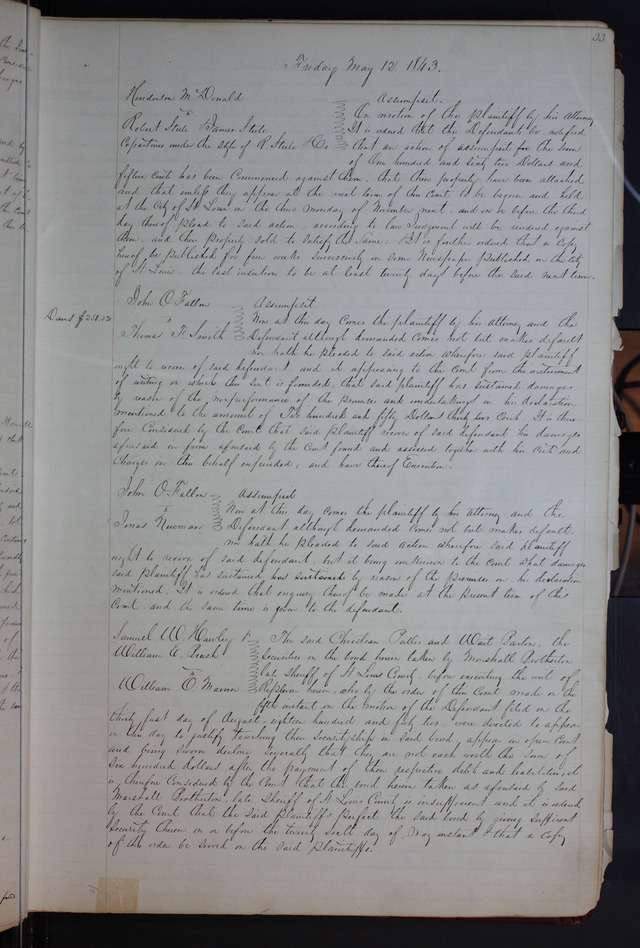 33
Friday May 12. 1843.
Henderson McDonald
vs
Robert Steele James Steele
Copartners under the style of R. Steele & Co
Assumpsit.
On motion of the plaintiff by his Attorney
It is ordered that the Defendants be notified
that an action of assumpsit for the sum
of One hundred and sixty two Dollars and
fifteen Cents has been Commenced against them, that their property has been attached
and that unless they appear at the next term of this Court to be begun and held
at the City of St Louis on the third Monday of November next, and on or before the third
day thereof plead to said action, according to law Judgment will be rendered against
them, and their property sold to satisfy the same. It is further ordered that a Copy
hereof be published for four weeks successively in some Newspaper published in the City
of St Louis, the last insertion to be at least twenty days before the said next term.
Dams $251.32
John O'Fallon
vs
Thomas F. Smith
Assumpsit
Now at this day comes the plaintiff by his Attorney and the
Defendant although demanded comes not but makes default
nor hath he pleaded to said action wherefore said plaintiff
ought to recover of said defendant and it appearing to the Court from the instrument
of writing on which this suit is founded, that said plaintiff has sustained damages
by reason of the nonperformance of the promises and undertakings in his declaration
mentioned to the amount of Two hundred and fifty Dollars thirty two Cents. It is there-
fore Considered by the Court that said plaintiff recover of said defendant his damages
aforesaid in form aforesaid by the Court found and assessed together with his Costs and
Charges in this behalf expended, and have thereof Execution.
John O'Fallon
vs
Jonas Newman
Assumpsit
Now at this day comes the plaintiff by his Attorney and the
Defendant although demanded comes not but makes default
nor hath he pleaded to said action wherefore said plaintiff
ought to recover of said defendant, but it being unknown to the Court what damages
said plaintiff has sustained by reason of the premises in his declaration
mentioned. It is ordered that enquiry thereof be made at the present term of this
Court, and the same time is given to the defendant.
Samuel W. Hawley &
William A. Brash
vs
William E. Mason
The said Christian Pullis and West Paxton, the
Securities in the bond herein taken by Marshall Brotherton
late Sheriff of St Louis County, upon executing the writ of
Replevin herein, who by the order of this Court made on the
fifth instant on the motion of the Defendant filed on the
thirty first day of August, eighteen hundred and forty two, were directed to appear
on this day to justify touching their securityship in said bond, appear in open Court
and being sworn declare severally that they are not each worth the sum of
Six hundred dollars after the payment of their respective debts and liabilities, it
is therefore Considered by the Court that the bond herein taken as aforesaid by said
Marshall Brotherton, late Sheriff of St Louis County is insufficient and it is ordered
by the Court that the said plaintiffs perfect the said bond by giving sufficient
Security therein on or before the twenty sixth day of May instant & that a copy
of this order be served on the said plaintiffs.